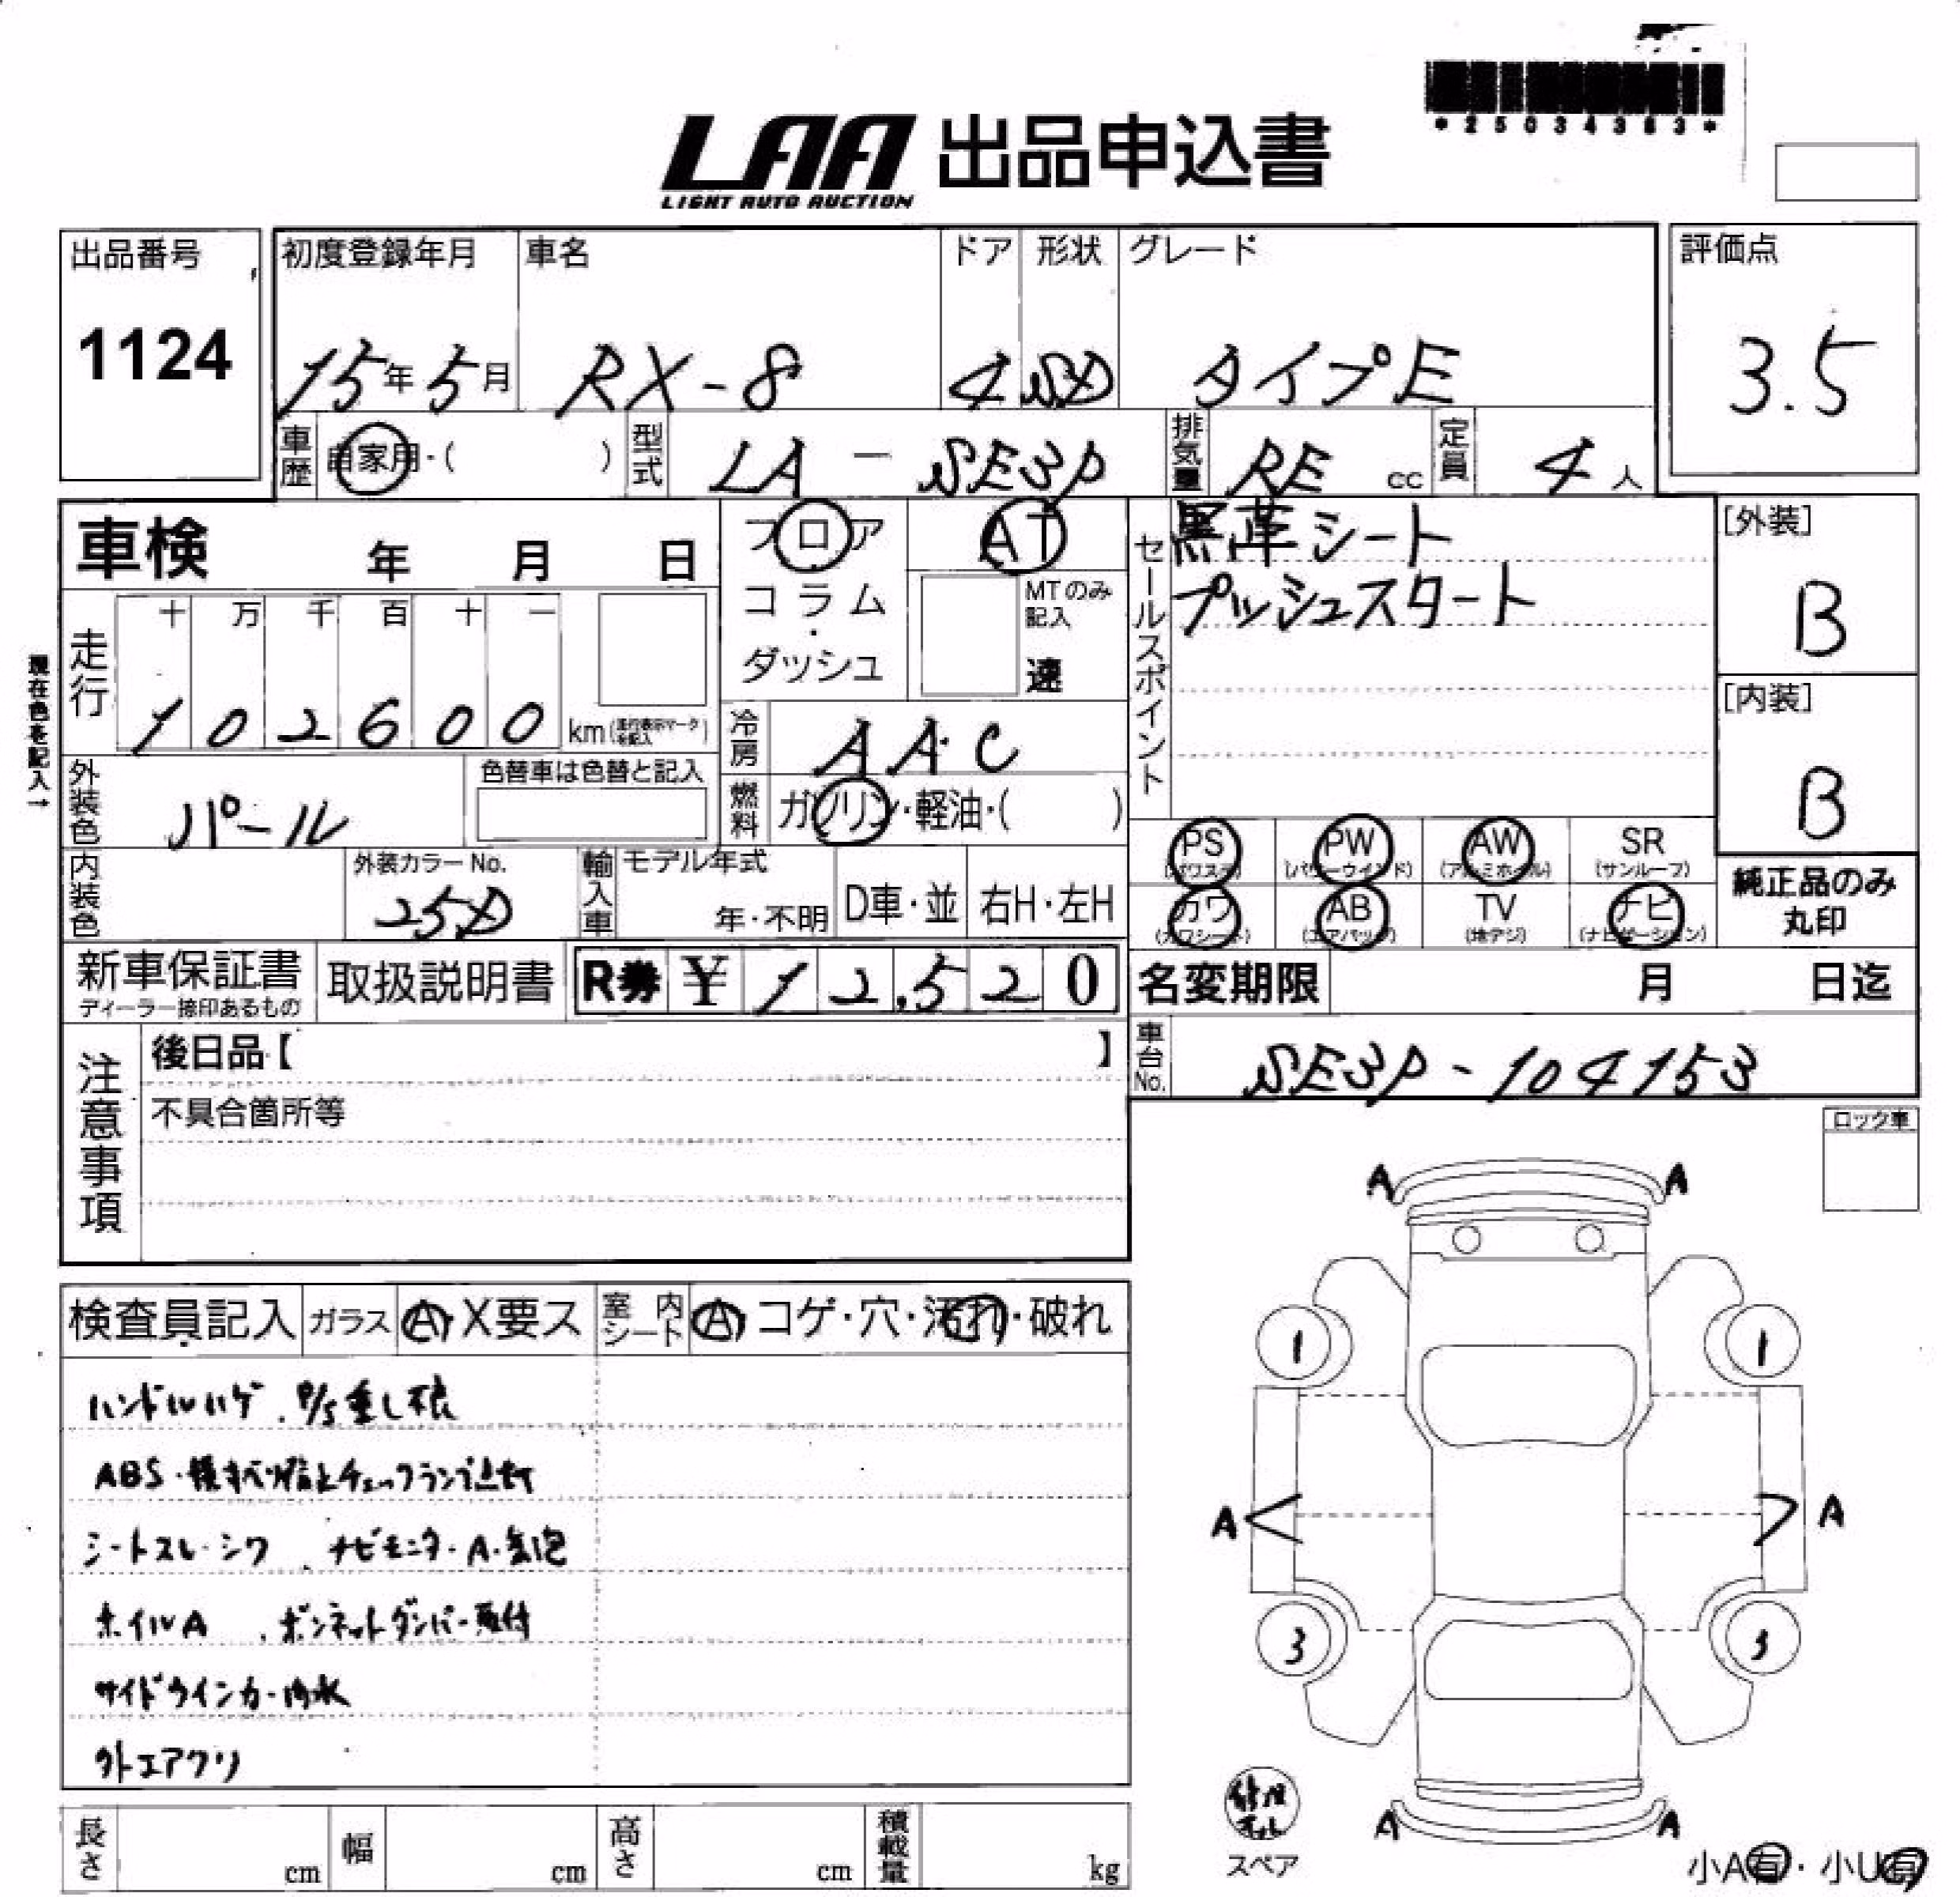 *25034383*
LAA 出品申込書
LIGHT AUTO AUCTION
出品番号
1124
初度登録年月
15年5月
車名
RX-8
ドア
4
形状
SD
グレード
タイプE
評価点
3.5
車歴
自家用・( )
型式
LA - SE3P
排気量
RE cc
定員
4人
車検 年 月 日
フロア
コラム
・
ダッシュ
AT
MTのみ記入
速
セールスポイント
黒革シート
プッシュスタート
[外装]
B
[内装]
B
現在色を記入→
走行
十 万 千 百 十 一
1 0 2 6 0 0 km(走行表示マークを記入)
冷房
AAC
外装色
パール
色替車は色替と記入
燃料
ガソリン・軽油・( )
PS (パワステ)
PW (パワーウインド)
AW (アルミホイル)
SR (サンルーフ)
カワ (カワシート)
AB (エアバッグ)
TV (地デジ)
ナビ (ナビゲーション)
純正品のみ
丸印
内装色
外装カラーNo.
25D
輸入車
モデル年式
年・不明
D車・並
右H・左H
新車保証書
ディーラー捺印あるもの
取扱説明書
R券 ¥ 12,520
名変期限 月 日迄
車台No.
SE3P-104153
注意事項
後日品【 】
不具合箇所等
ロック車
検査員記入
ガラス
A・X要ス
室内シート
A コゲ・穴・汚れ・破れ
ハンドルハゲ、P/S重し不良
ABS・横すべり防止チェックランプ点灯
シートスレ・シワ、ナビモニター・A・気泡
ホイルA、ボンネットダンパー取付
サイドウインカー内水
外エアクリ
A A
1 1
A A
3 3
A A
スペア
小A有・小U有
長さ cm
幅 cm
高さ cm
積載量 kg